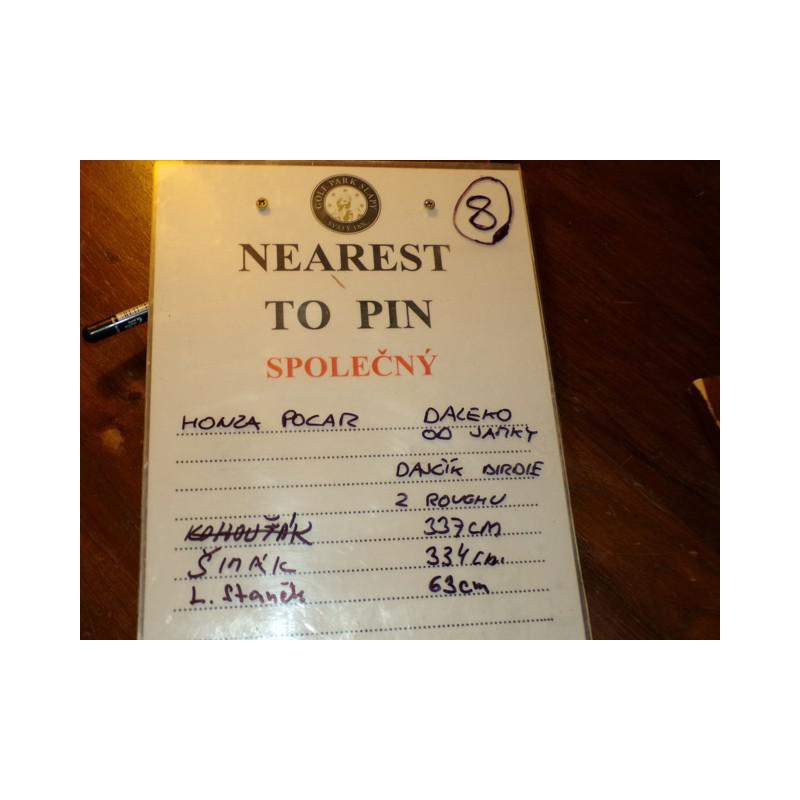 GOLF PARK SLAPY
SVATÝ JAN
8
NEAREST
TO PIN
SPOLEČNÝ
HONZA POCAR DALEKO
OD JAMKY
DAJČÍK BIRDIE
Z ROUGHU
KOHOUŤÁK 337cm
ŠIMÁK 334cm
L. Staněk 63cm